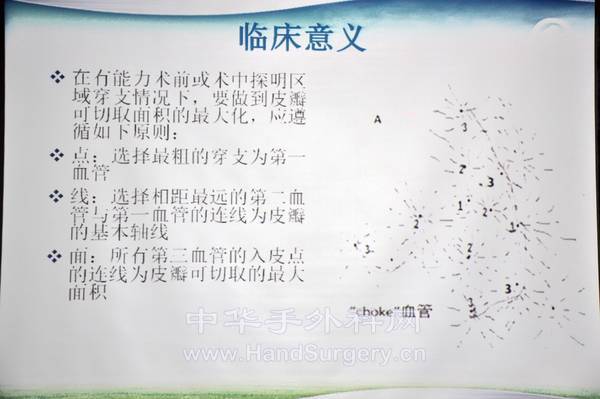 临床意义
在有能力术前或术中探明区
域穿支情况下，要做到皮瓣
可切取面积的最大化，应遵
循如下原则：
点：选择最粗的穿支为第一
血管
线：选择相距最远的第二血
管与第一血管的连线为皮瓣
的基本轴线
面：所有第三血管的入皮点
的连线为皮瓣可切取的最大
面积
A
3
2
3
1
2
1
2
3
3
3
"choke"血管
中华手外科网
www.HandSurgery.cn